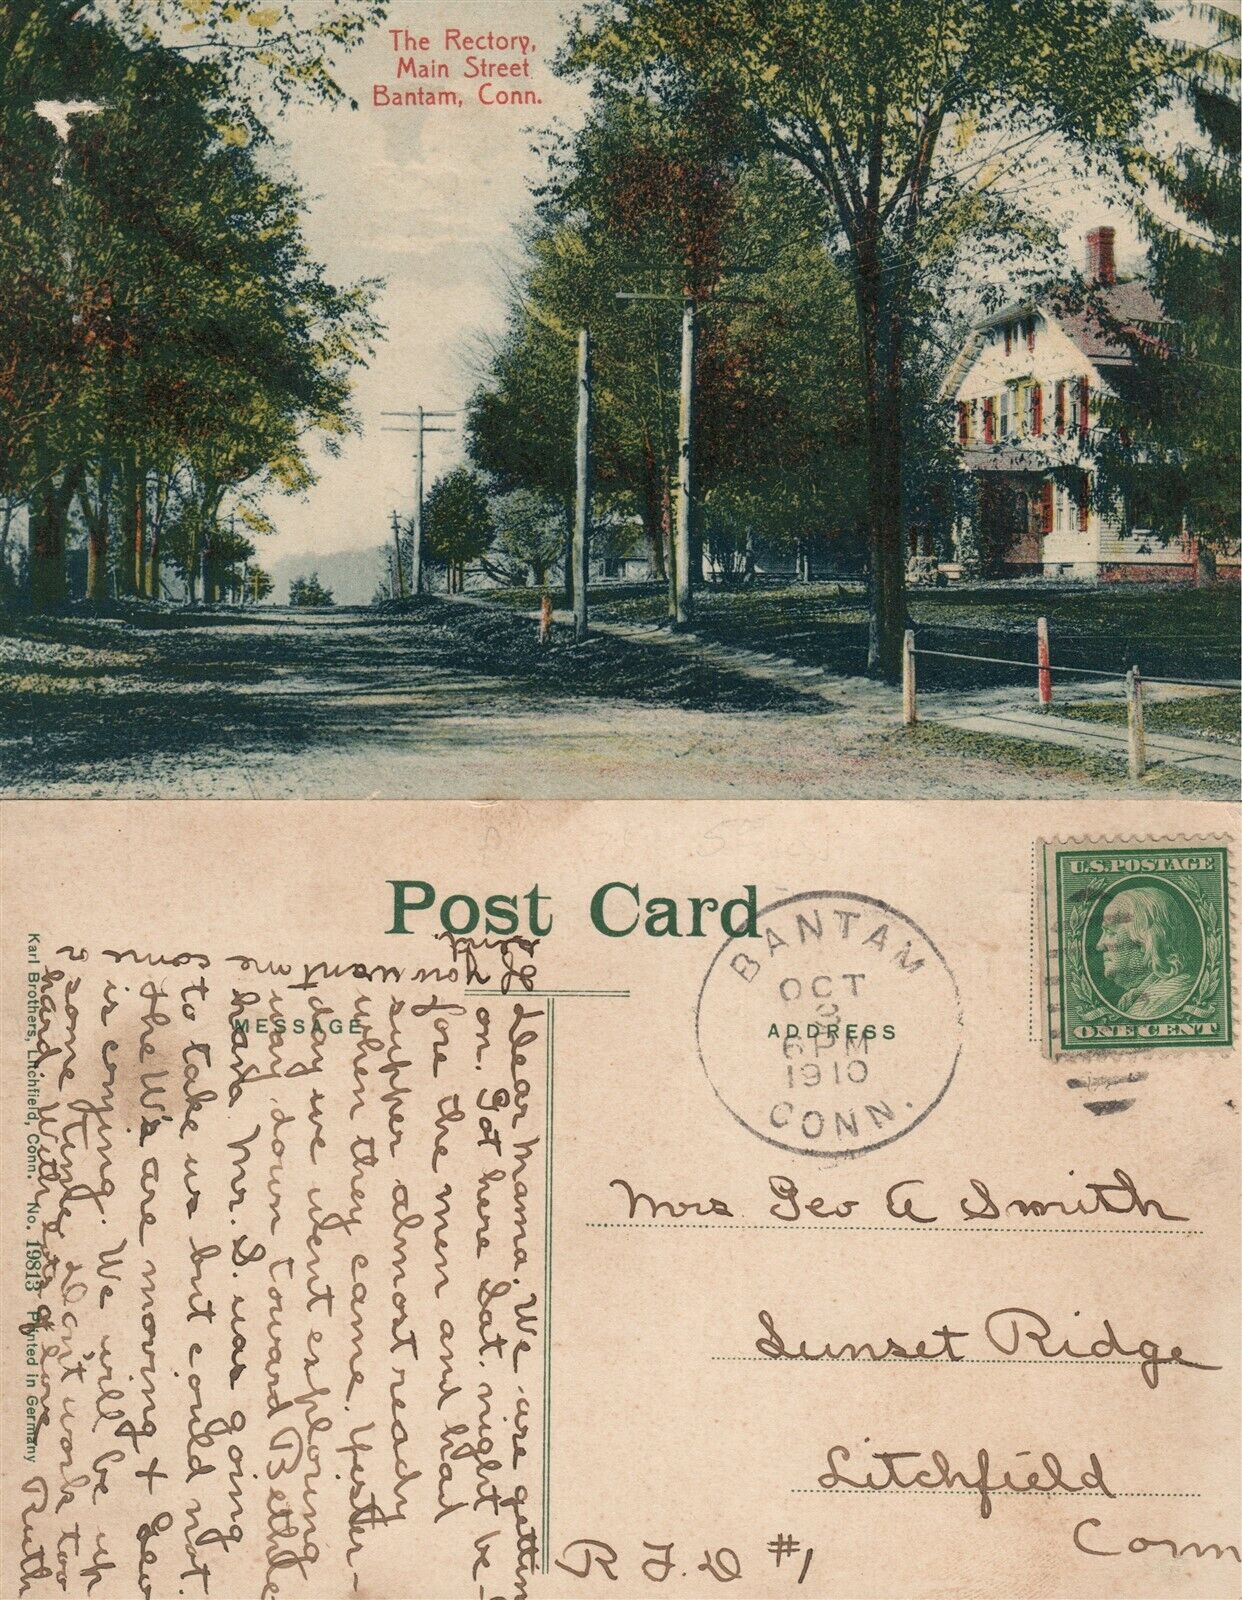 The Rectory,
Main Street
Bantam, Conn.
Post Card
BANTAM
OCT
3
6 PM
1910
CONN.
U.S. POSTAGE
ONE CENT
MESSAGE
ADDRESS
Dear Mama. We are gettin
on. Got here Sat. night be-
fore the men and had
supper almost ready
when they came. Yester-
day we went exploring
way down toward Bethle
ham. Mr. S. was going
to take us but could not.
The W's are moving & Geo
is coming. We will be up
some time. Don't work too
hard. With lots of love
Ruth
If you want me
come
Mrs Geo A Smith
Sunset Ridge
Litchfield
Conn
R F. D #1
Karl Brothers, Litchfield, Conn. No. 19813 Printed in Germany